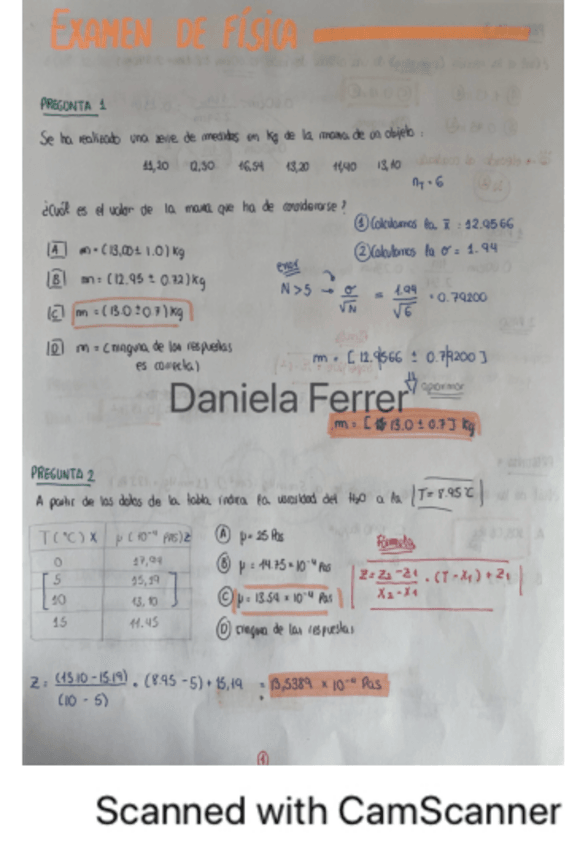 EXAMEN DE FÍSICA
PREGUNTA 1
Se ha realizado una serie de medidas en Kg de la masa de un objeto:
11,20 12,50 16,54 13,20 11,40 13,10
n = 6
¿Cuál es el valor de la masa que ha de considerarse?
① Calculamos la x̄ : 12.9566
② Calculamos la σ = 1.94
A m = (13,00 ± 1.0) Kg
B m = (12.95 ± 0.72) Kg
C m = (13.0 ± 0.7) Kg
D m = (ninguna de las respuestas
es correcta)
error
N>5 → σ/√N = 1.94/√6 = 0.79200
m = [12.9566 ± 0.79200]
aproximar
m = [13.0 ± 0.7] Kg
Daniela Ferrer
PREGUNTA 2
A partir de los datos de la tabla indica la viscosidad del H₂O a la T = 8.95 ℃
T (℃) X μ (10⁻⁴ Pas) Z
0
5 15,19
10 13,10
15 11.45
A μ = 25 Pas
B μ = 14.75 × 10⁻⁴ Pas
C μ = 13.54 × 10⁻⁴ Pas
D ninguna de las respuestas
Fórmula
Z = Z₂ - Z₁ / X₂ - X₁ · (T - X₁) + Z₁
Z = (13.10 - 15.19) / (10 - 5) · (8.95 - 5) + 15,19 = 13,5389 × 10⁻⁴ Pas
①
Scanned with CamScanner